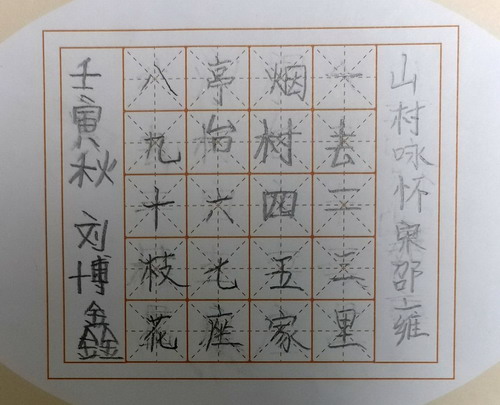 山村咏怀宋邵雍
一去二三里
烟树四五家
亭台六七座
八九十枝花
壬寅秋 刘博鑫